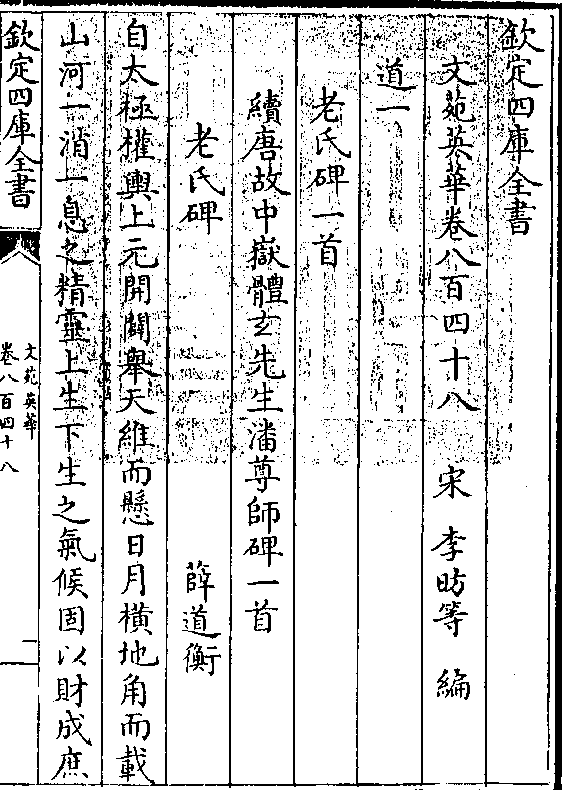 欽定四庫全書
文苑英華卷八百四十八 宋 李昉等 編
道一
老氏碑一首
續唐故中嶽體玄先生潘尊師碑一首
老氏碑 薛道衡
自太極權輿上元開闢舉天維而懸日月橫地角而載
山河一消一息之精靈上生下生之氣候固以財成庶
欽定四庫全書
文苑英華
卷八百四十八
一